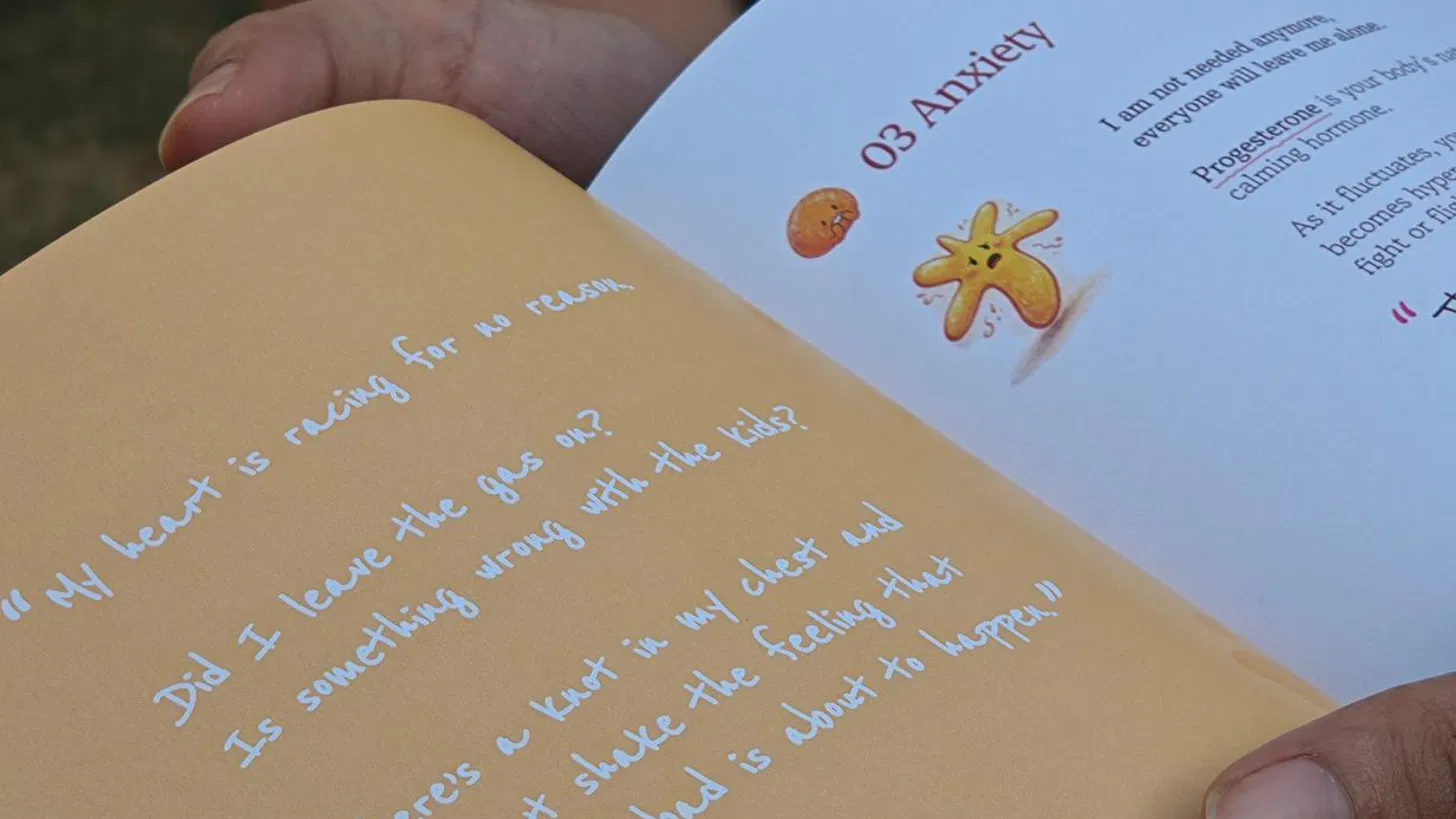 “My heart is racing for no reason.
Did I leave the gas on?
Is something wrong with the kids?
a knot in my chest and
shake the feeling that
is about to happen.”
03 Anxiety
I am not needed anymore,
everyone will leave me alone.
Progesterone is your body's
calming hormone.
As it fluctuates,
becomes
fight or
“